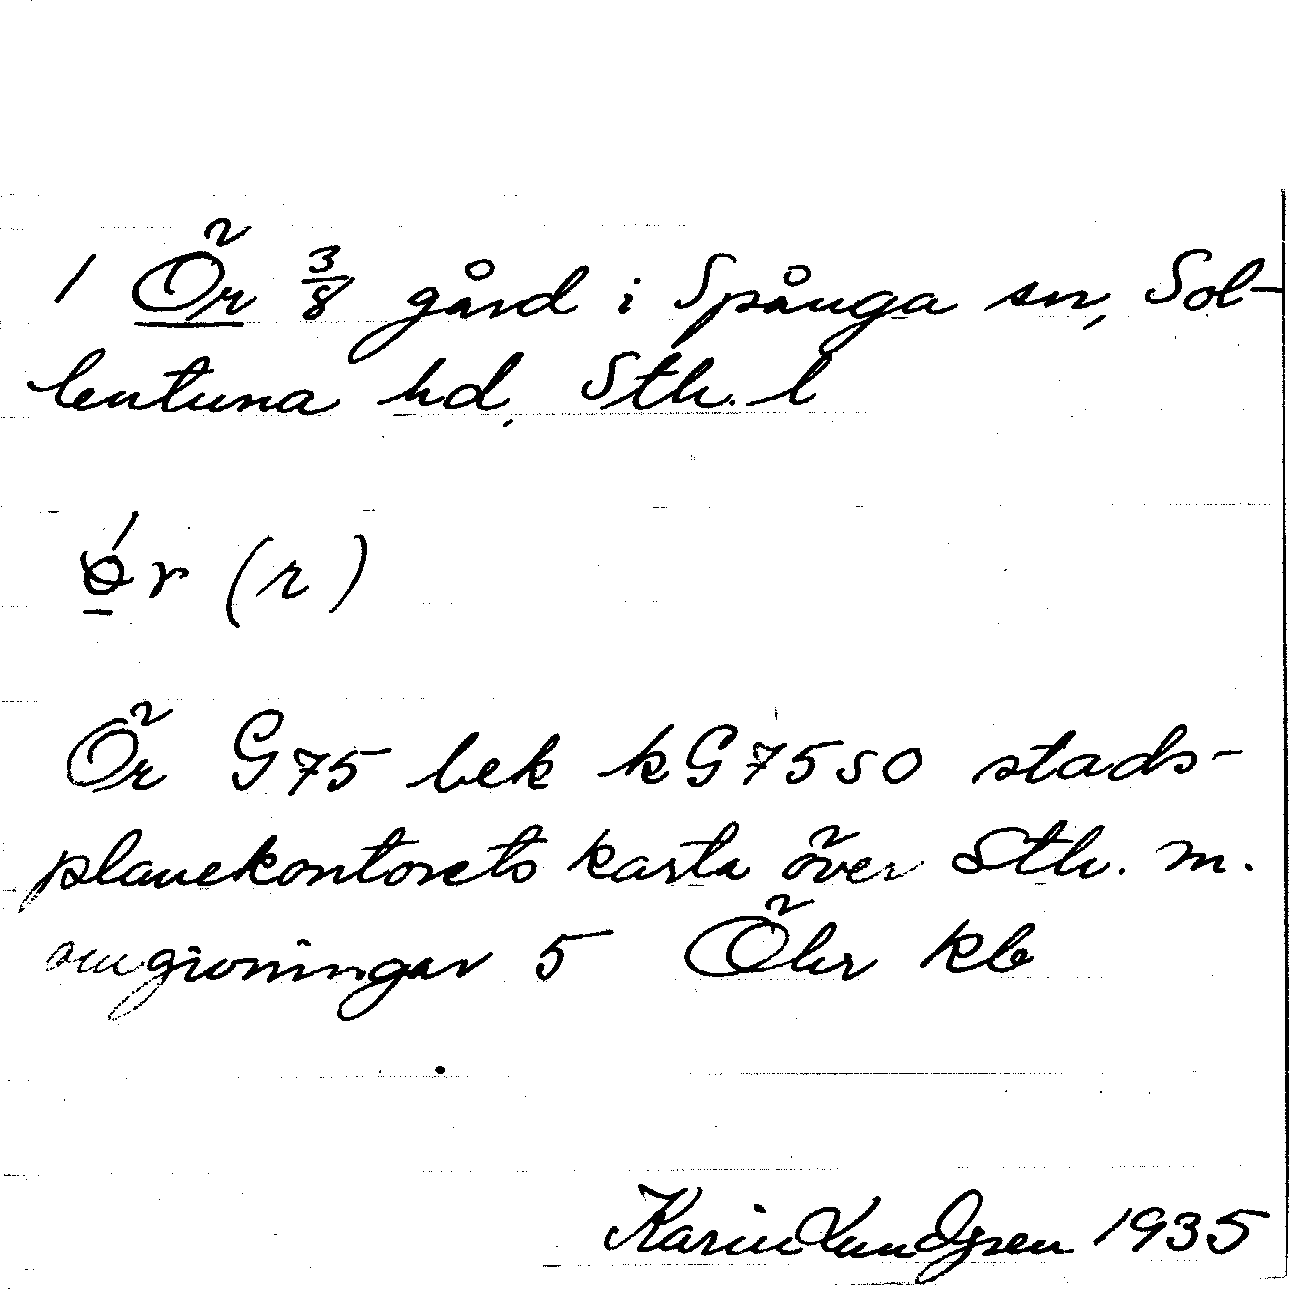 1 Ör 3/8 gård i Spånga sn, Sol-
lentuna hd, Sth. l
r (r)
Ör G75 bek kG7550 stads-
planekontorets karta över Sth. m.
omgivningar 5 Öhr kb
Karin Lundgren 1935